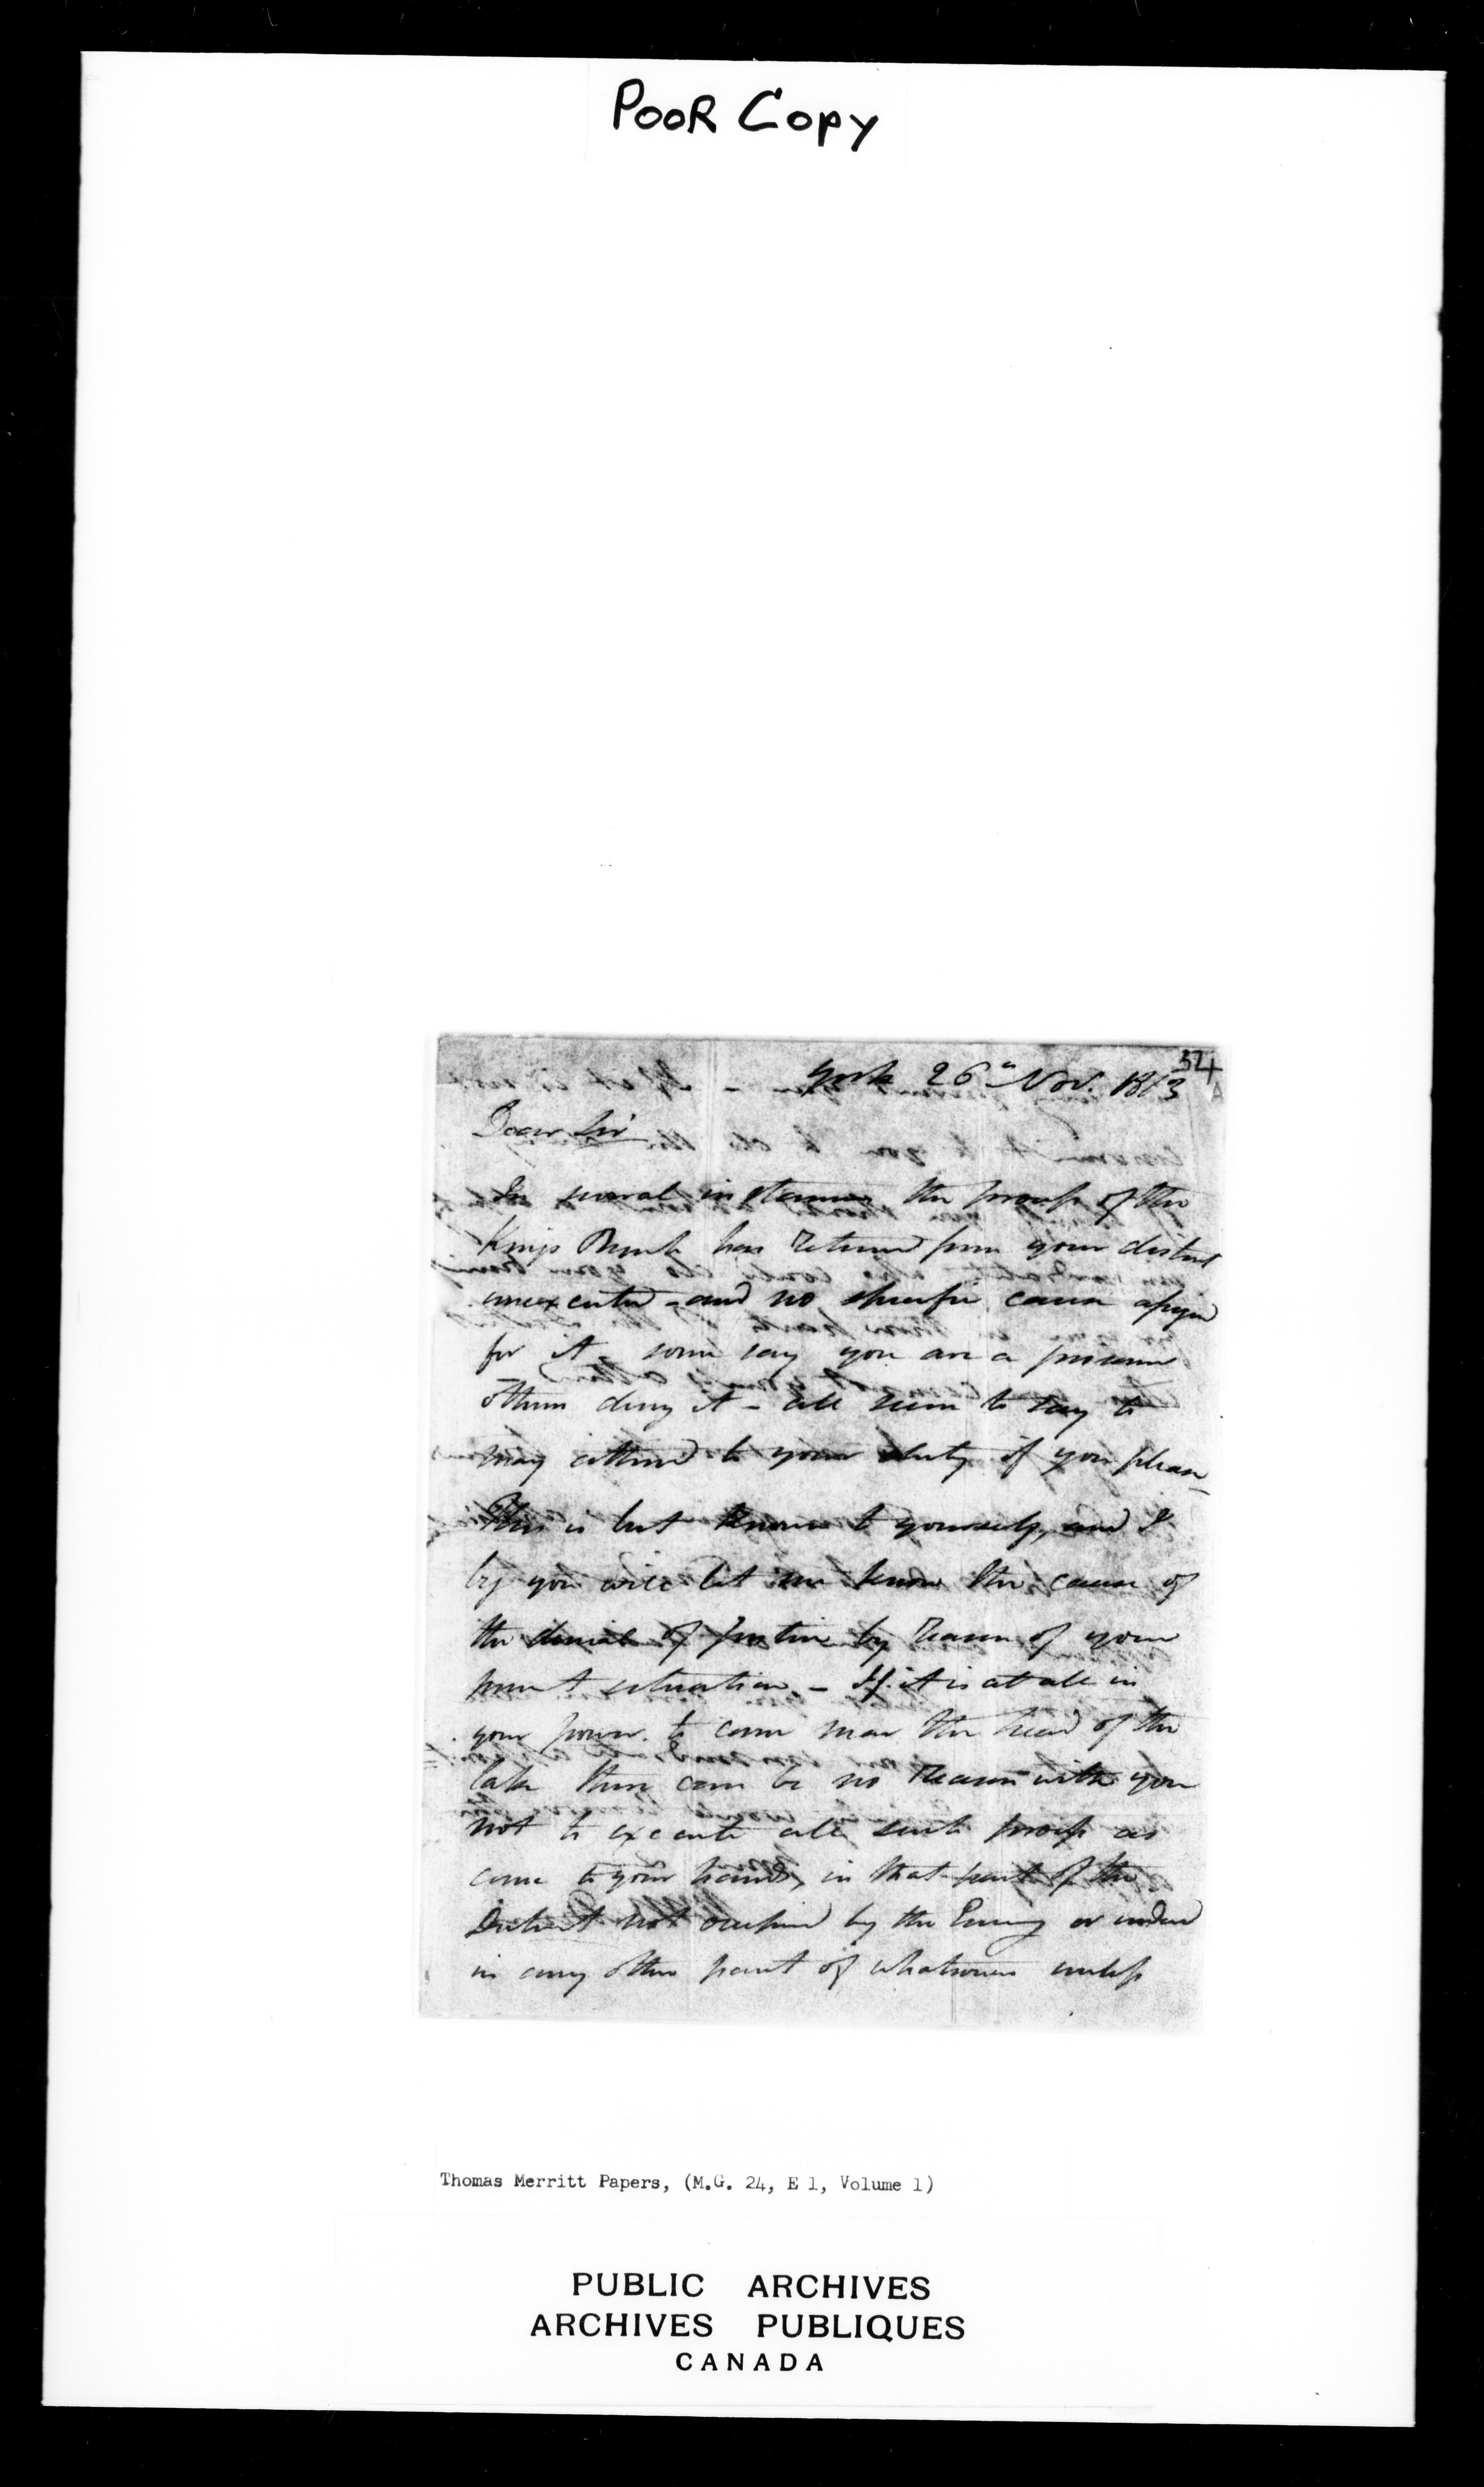 POOR COPY
324
A
York 26th Nov. 1813
Dear Sir
In several instances the process of the
Kings Bench has returned from your district
unexecuted - and no specific cause assigned
for it - some say you are a prisoner
others deny it - all seem to say to
may attend to your duty if you please
This is best known to yourself, and I
beg you will let me know the cause of
the denial of Justice by reason of your
present situation - If it is at all in
your power to come near the head of the
lake there can be no reason with you
not to execute all such process as
come to your hands, in that part of the
District not occupied by the Enemy or indeed
in any other part of whatsoever unless
Thomas Merritt Papers, (M.G. 24, E 1, Volume 1)
PUBLIC ARCHIVES
ARCHIVES PUBLIQUES
CANADA